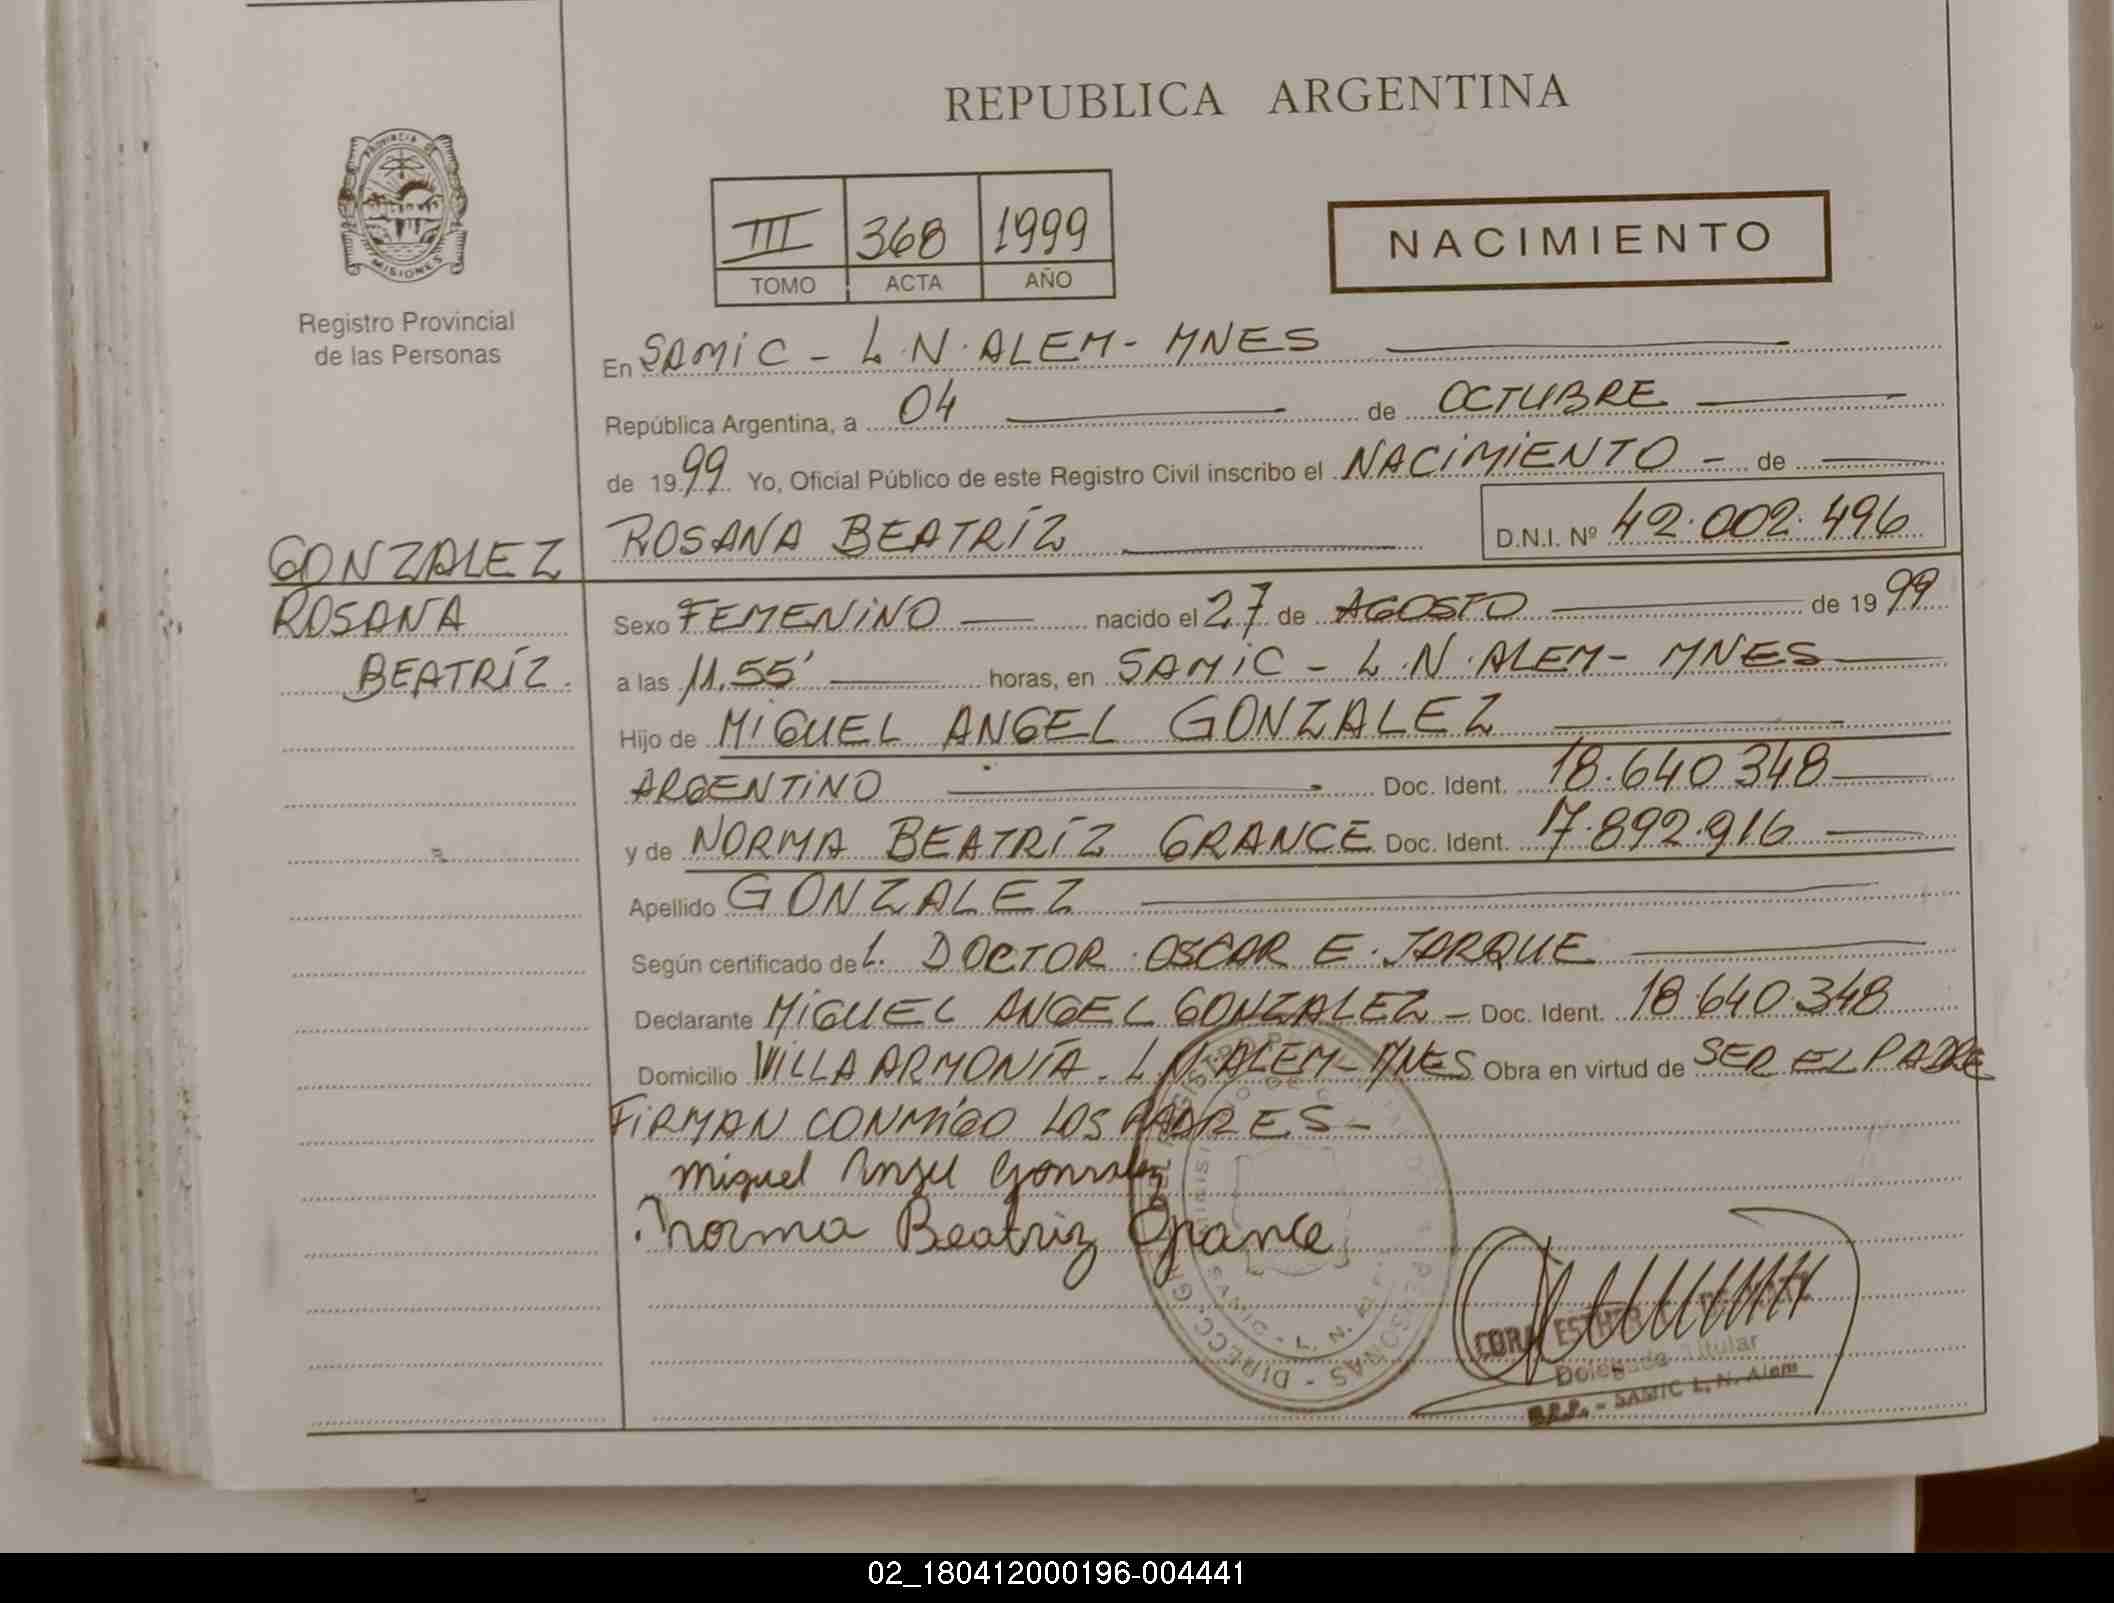 REPUBLICA ARGENTINA
PROVINCIA DE
MISIONES
Registro Provincial
de las Personas
III 368 1999
TOMO ACTA AÑO
NACIMIENTO
En SAMIC - L.N. ALEM - MNES
República Argentina, a 04 de OCTUBRE
de 1999 Yo, Oficial Público de este Registro Civil inscribo el NACIMIENTO - de
ROSANA BEATRÍZ D.N.I. Nº 42.002.496
GONZALEZ
ROSANA
BEATRÍZ.
Sexo FEMENINO nacido el 27 de AGOSTO de 1999
a las 11.55' horas, en SAMIC - L.N. ALEM - MNES
Hijo de MIGUEL ANGEL GONZALEZ
ARGENTINO Doc. Ident. 18.640.348
y de NORMA BEATRÍZ GRANCE Doc. Ident. 17.892.916
Apellido GONZALEZ
Según certificado del. DOCTOR OSCAR E. JARQUE
Declarante MIGUEL ANGEL GONZALEZ - Doc. Ident. 18.640.348
Domicilio VILLA ARMONÍA. L.N. ALEM - MNES Obra en virtud de SER EL PADRE
FIRMAN CONMIGO LOS PADRES -
Miguel Angel Gonzalez
Norma Beatriz Grance
CORA ESTHER
Delegada Titular
R.P.P. - SAMIC L. N. Alem
02_180412000196-004441